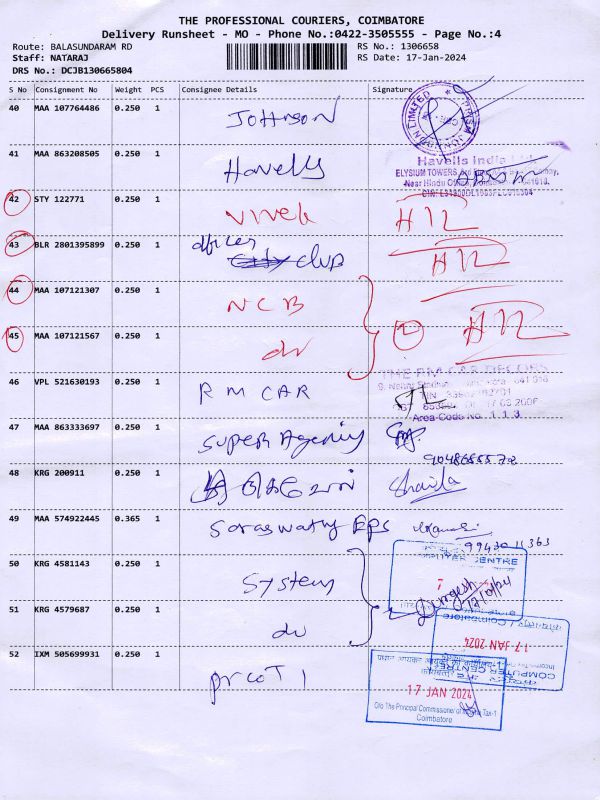 THE PROFESSIONAL COURIERS, COIMBATORE
Delivery Runsheet - MO - Phone No.:0422-3505555 - Page No.:4
Route: BALASUNDARAM RD
RS No.: 1306658
Staff: NATARAJ
RS Date: 17-Jan-2024
DRS No.: DCJB130665804
S No Consignment No Weight PCS Consignee Details Signature
40 MAA 107764486 0.250 1 Johnson
41 MAA 863208505 0.250 1 Havells
Havells India
ELYSIUM TOWERS
42 STY 122771 0.250 1 Vivek H12
43 BLR 2801395899 0.250 1 officer club H12
44 MAA 107121307 0.250 1 NCB
45 MAA 107121567 0.250 1 do 2 H12
46 VPL 521630193 0.250 1 RM CAR
THE RM CAR DECORS
Area Code No. 1 1 3
47 MAA 863333697 0.250 1 Super Agency
48 KRG 200911 0.250 1 Shaila
49 MAA 574922445 0.365 1 Saraswathy Eps
99430 11363
50 KRG 4581143 0.250 1 System
51 KRG 4579687 0.250 1 do
COMPUTER CENTRE
17 JAN 2024
52 IXM 505699931 0.250 1 prcot 1
17 JAN 2024
O/o The Principal Commissioner of Income Tax-1
Coimbatore